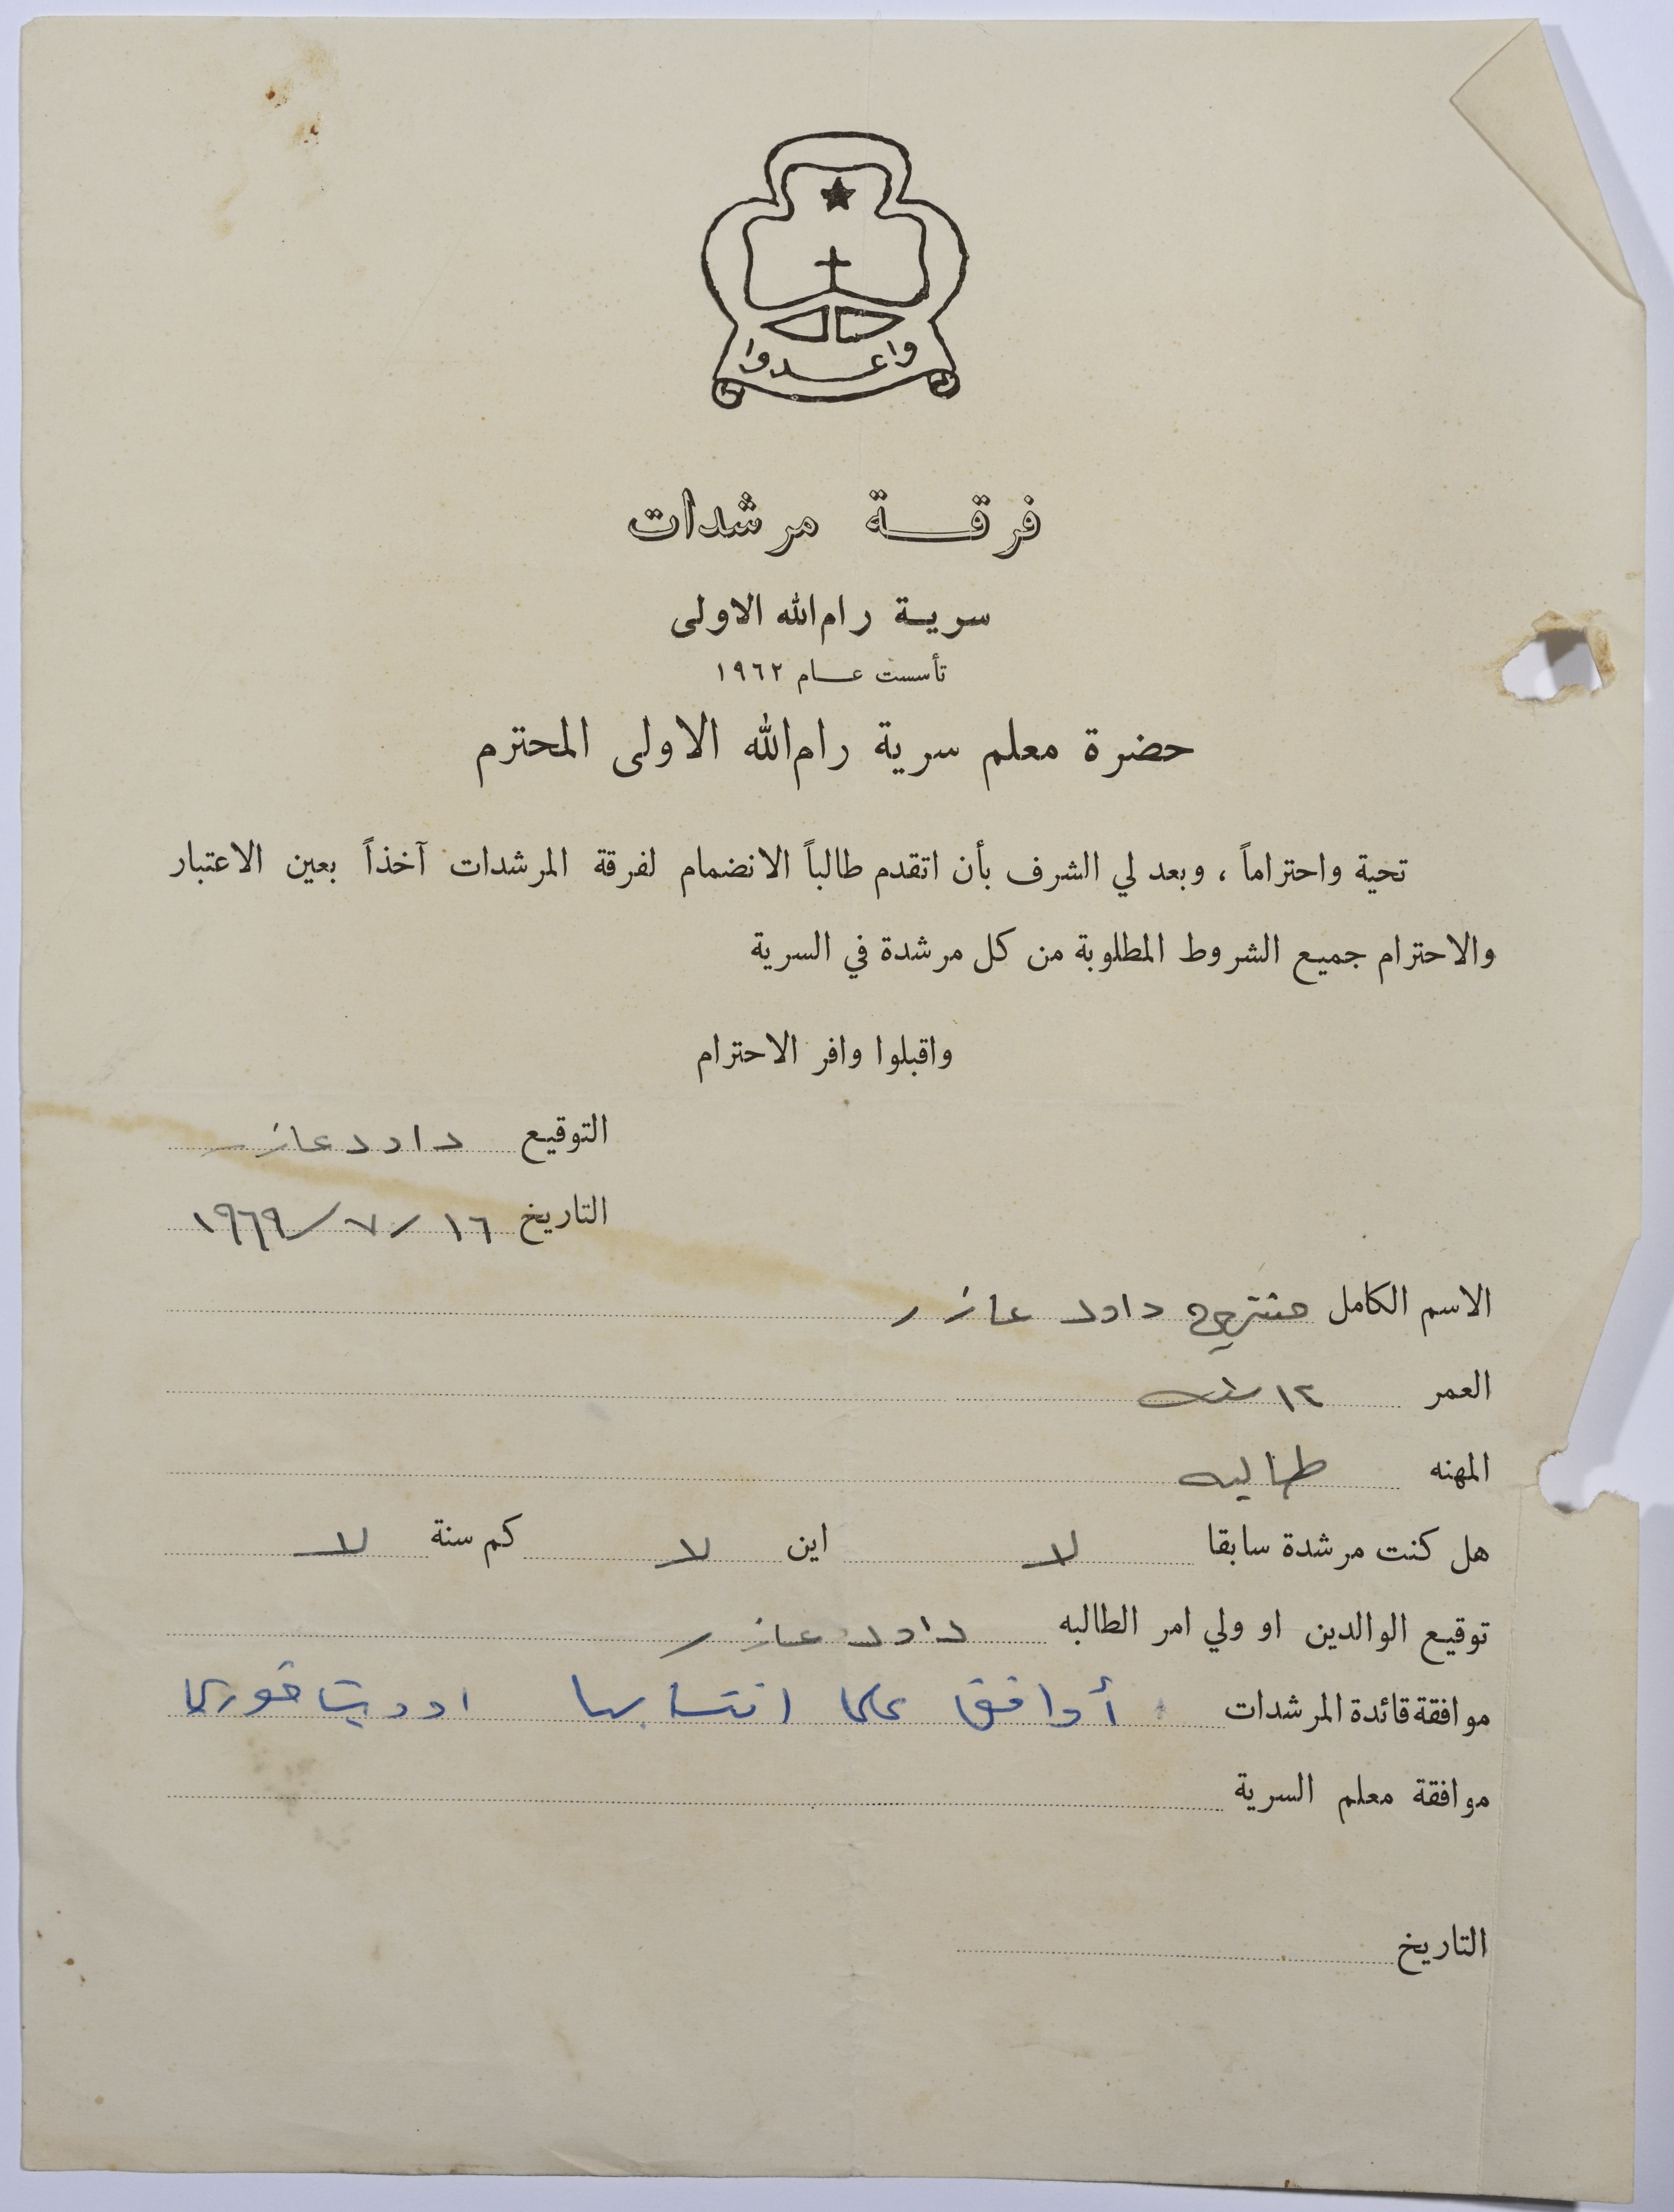 واعدوا
فرقة مرشدات
سرية رام الله الاولى
تأسست عام ١٩٦٢
حضرة معلم سرية رام الله الاولى المحترم
تحية واحتراماً ، وبعد لي الشرف بأن اتقدم طالباً الانضمام لفرقة المرشدات آخذاً بعين الاعتبار
والاحترام جميع الشروط المطلوبة من كل مرشدة في السرية
واقبلوا وافر الاحترام
التوقيع داود عازر
التاريخ ١٦ / ٧ / ١٩٦٩
الاسم الكامل داود عازر
العمر ١٢ سنه
المهنه طالبه
هل كنت مرشدة سابقا لا اين لا كم سنة لا
توقيع الوالدين او ولي امر الطالبه داود عازر
موافقة قائدة المرشدات أوافق على انتسابها اوديت خوري
موافقة معلم السرية
التاريخ